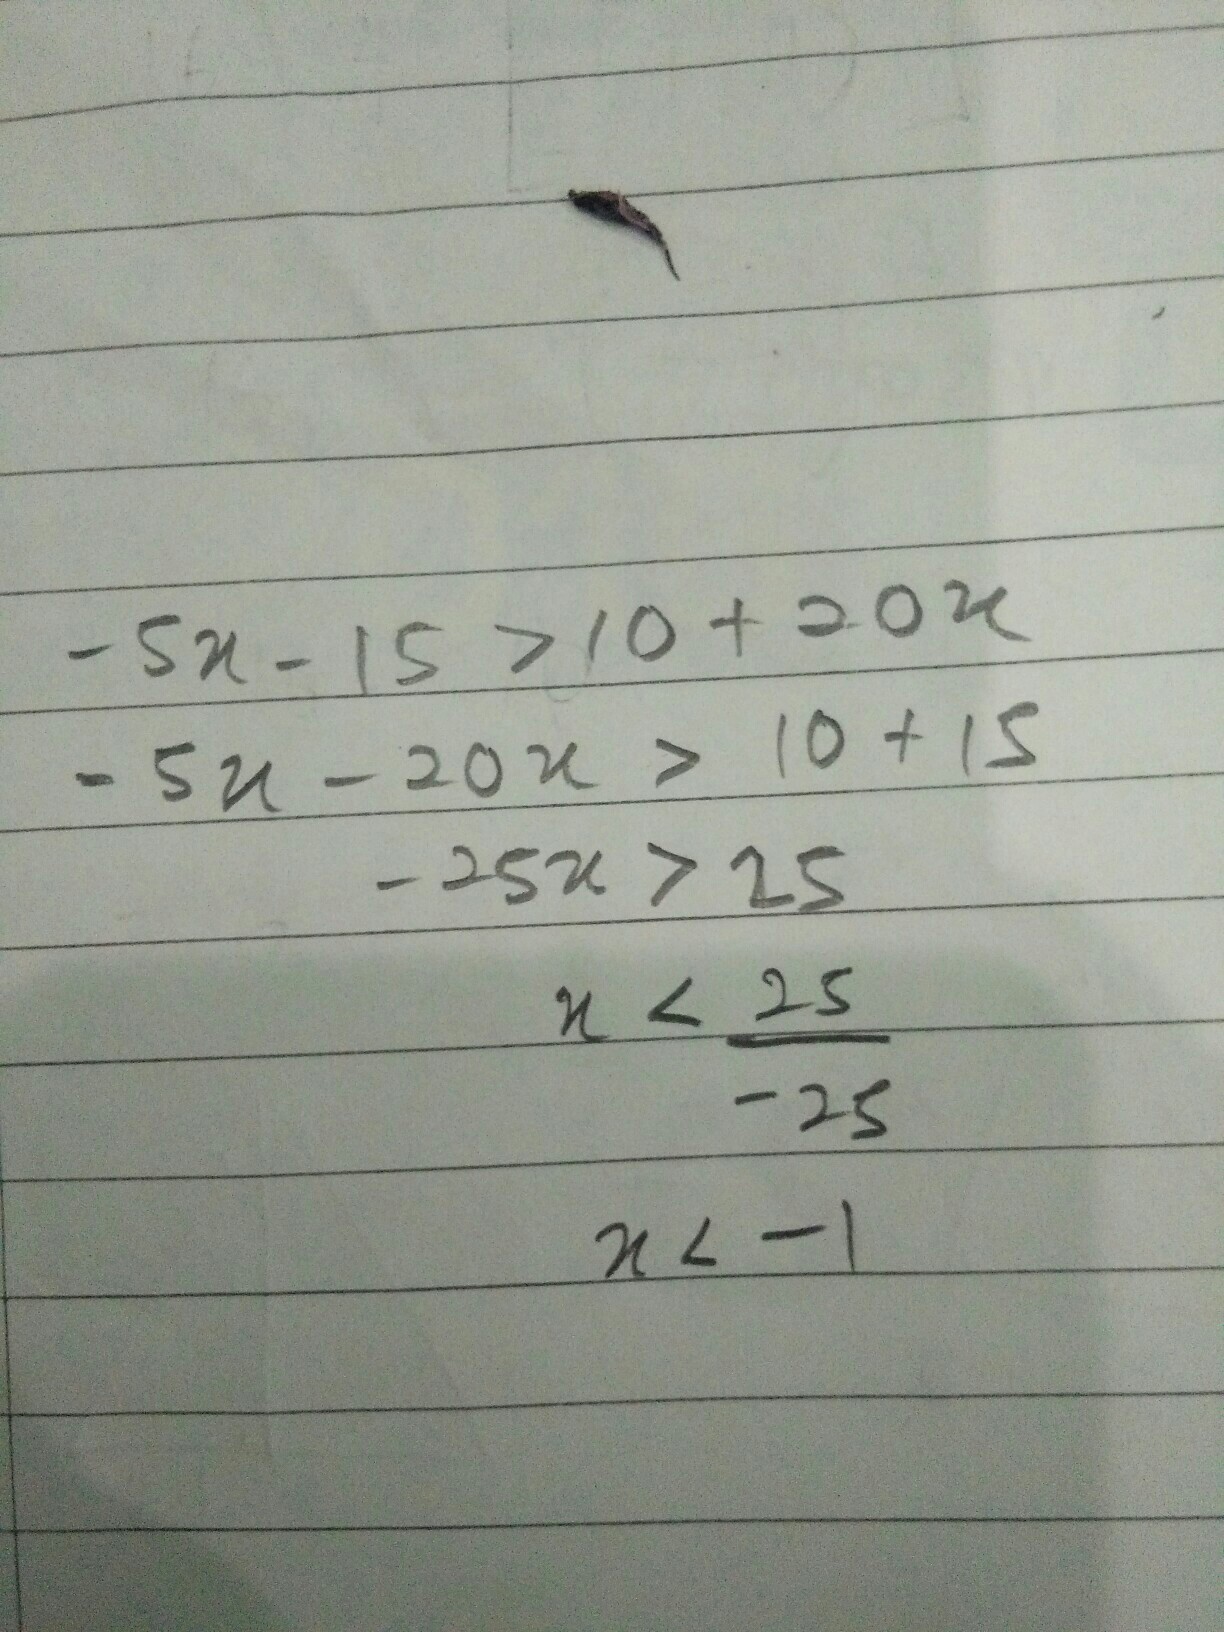 -5x - 15 > 10 + 20x
-5x - 20x > 10 + 15
-25x > 25
x < 25
-25
x < -1